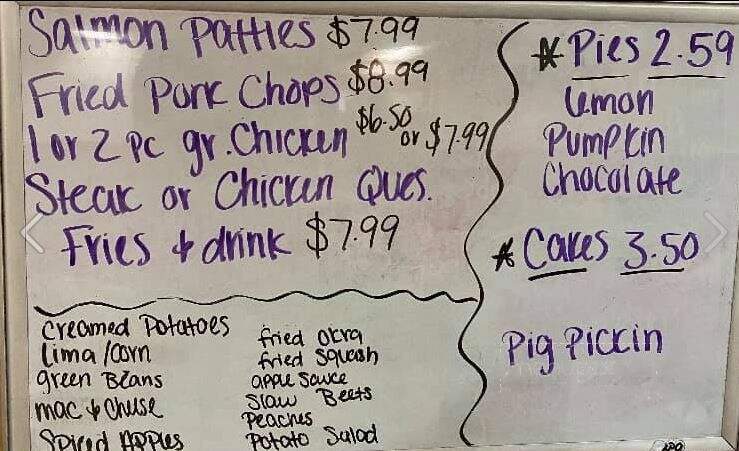 Salmon Patties $7.99
Fried Pork Chops $8.99
1 or 2 pc gr. Chicken $6.50 or $7.99
Steak or Chicken Ques.
Fries & drink $7.99
* Pies 2.59
Lemon
Pumpkin
Chocolate
* Cakes 3.50
Pig Pickin
Creamed Potatoes
Lima / Corn
green Beans
mac & Cheese
Spiced Apples
fried Okra
fried Squash
apple Sauce
Slaw Beets
Peaches
Potato Salad